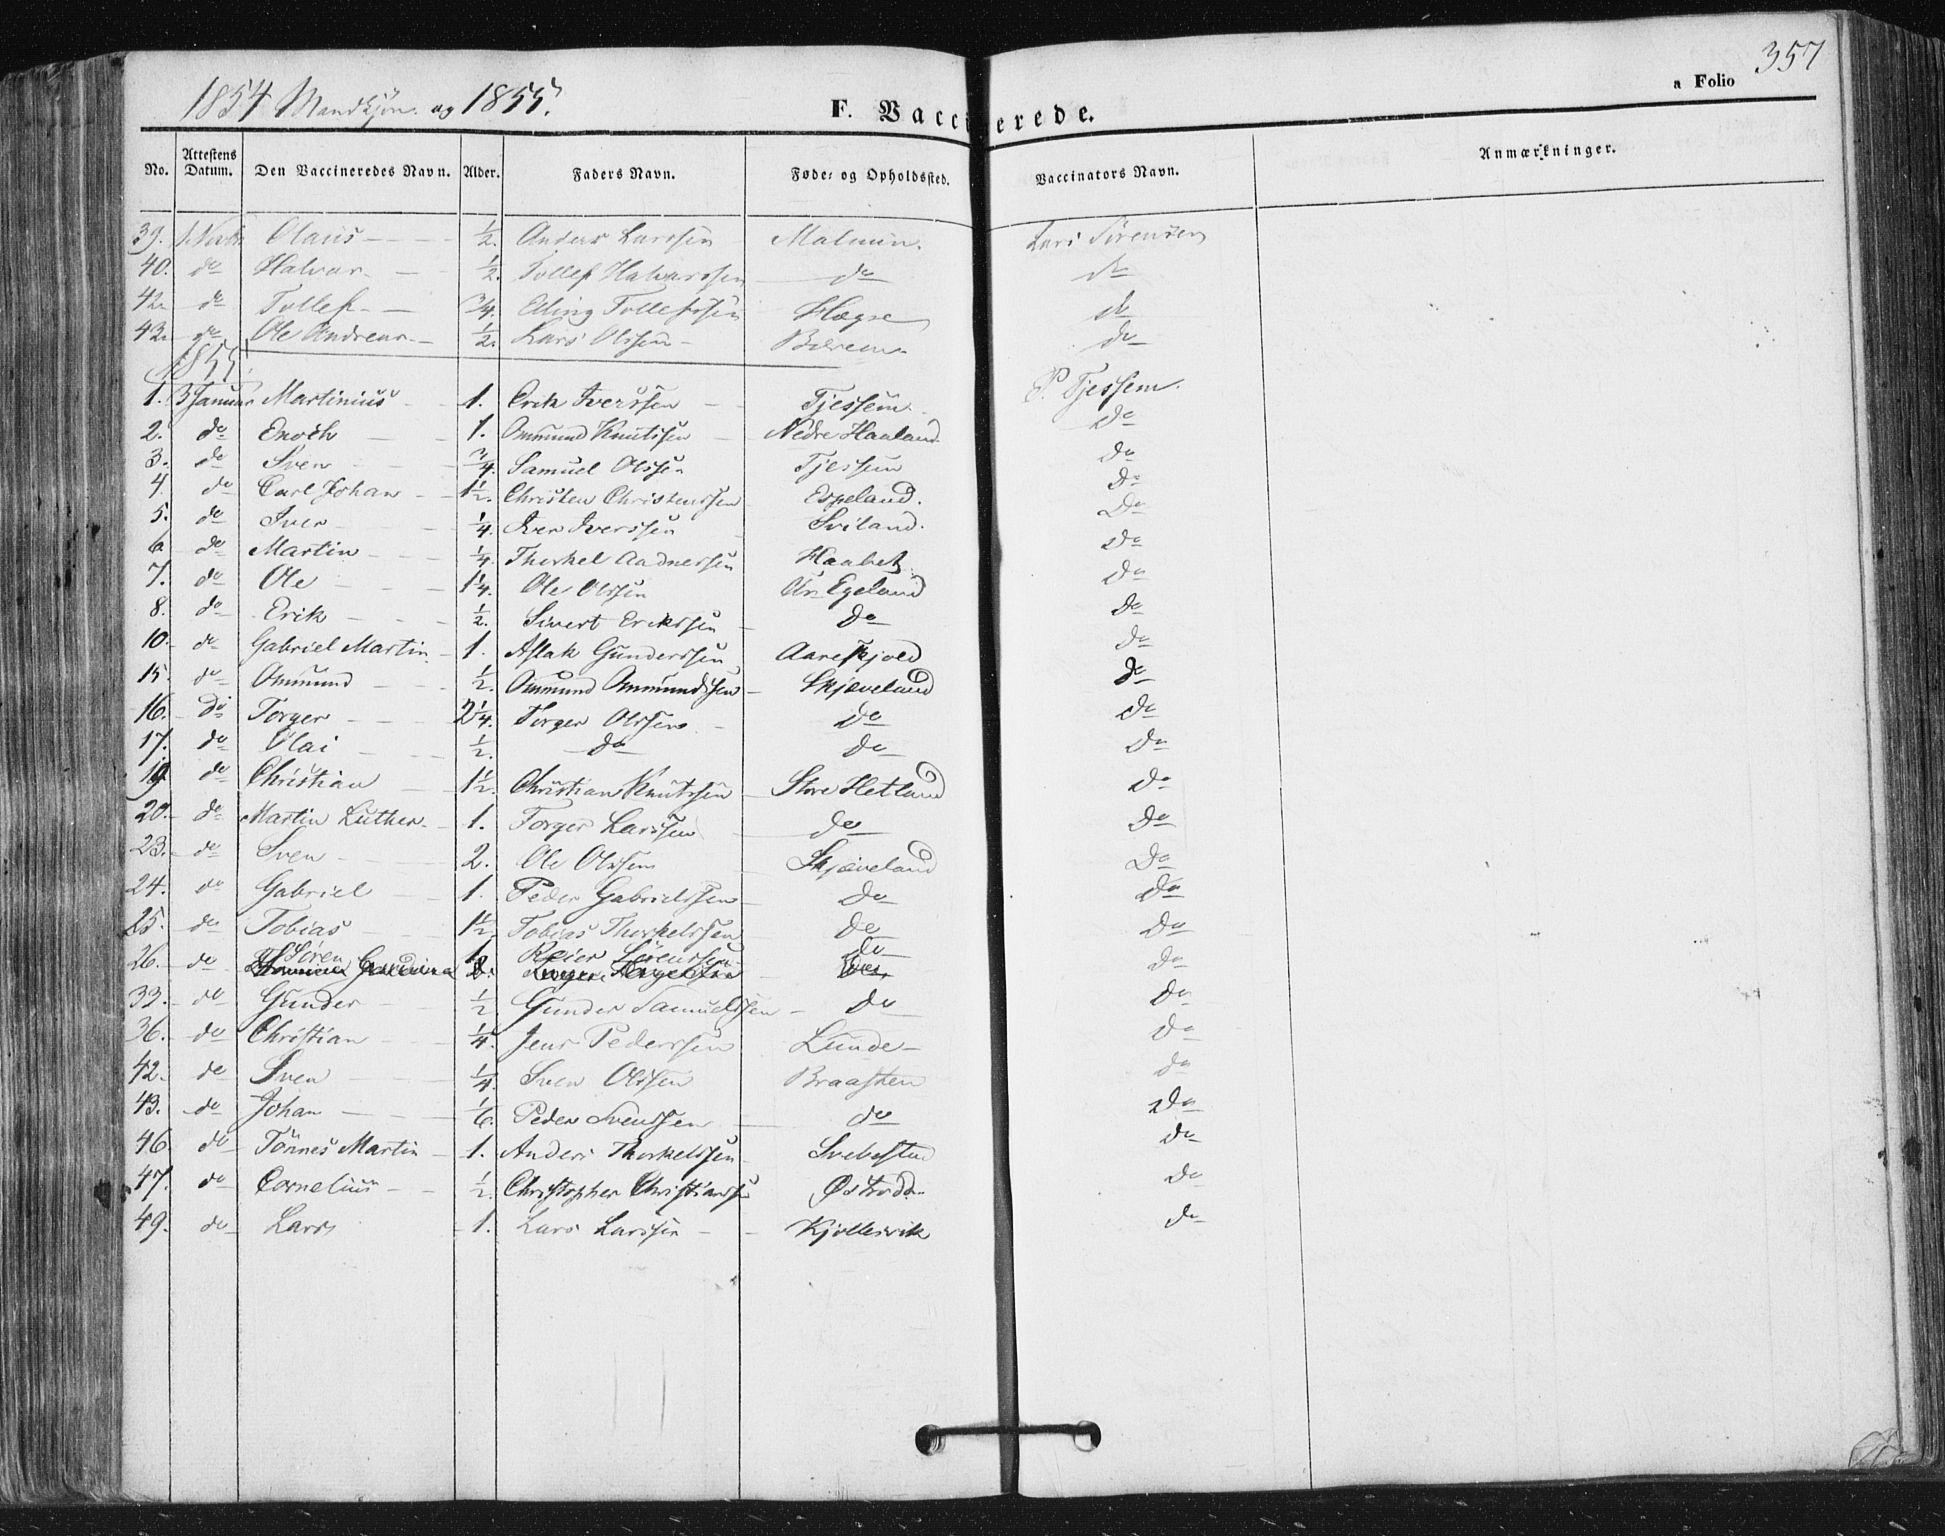 1854 Mandkjøn. og 1855. F. Vaccinerede. a Folio 357
No. Attestens Datum. Den Vaccineredes Navn. Alder. Faders Navn. Føde- og Opholdssted. Vaccinators Navn. Anmærkninger.
39. Olaus 1/2. Anders Larssen Malmin. Lars Sörensen
40. do Halvor 1/2. Tollef Halvorssen do do
42. do Tollef 3/4. Elling Tollefssen do
43. do Ole Andreas 1/2. Lars Olssen do
1855.
1. 3 Januar Martinius 1. Erik Iverssen Tjessem P. Tjessem.
2. do Enoch 1. Ommund Knutssen Nedre Haaland do
3. do Sven 3/4. Samuel Olssen Tjessem do
4. do Carl Johan 1 1/2. Christen Christenssen Espeland. do
5. do Iver 1/4. Iver Iverssen Sviland. Do
6 do Martin 1/4. Thorkel Aadnessen Haabet do
7. do Ole 1 1/4. Ole Olssen Egeland do
8. do Erik 1/2. Sivert Erikssen do do
10. do Gabriel Martin 1. Aslak Gunderssen Aareskjold do
15. do Ommund 1/2. Ommund Ommundssen Skjæveland do
16. do Torger 2 1/4. Torger Olssen do do
17. do Olai 1/2. do do do
19 do Christian 1 1/2. Christian Knutssen Store Hetland do
20. do Martin Luther 1. Torger Larssen do Do
23. do Sven 2. Ole Olssen Skjæveland Do
24. do Gabriel 1. Peder Gabrielssen do Do
25. do Tobias 1 1/2. Tobias Thorkelssen do Do
26. do Sören 1. Reier Sörenssen do Do
33. do Gunder 1/2 Gunder Samuelssen do Do
36. do Christian 1/4. Jens Pederssen Lunde do
42. do Sven 1/4. Sven Olssen Braasten do
43. do Johan 1/6. Peder Svenssen do Do
46. do Tönnes Martin 1. Anders Thorkelssen Svebestad do
47. do Cornelius 1/2. Christopher Christianssen do
49. do Lars 1. Lars Larssen Kjollesvik do